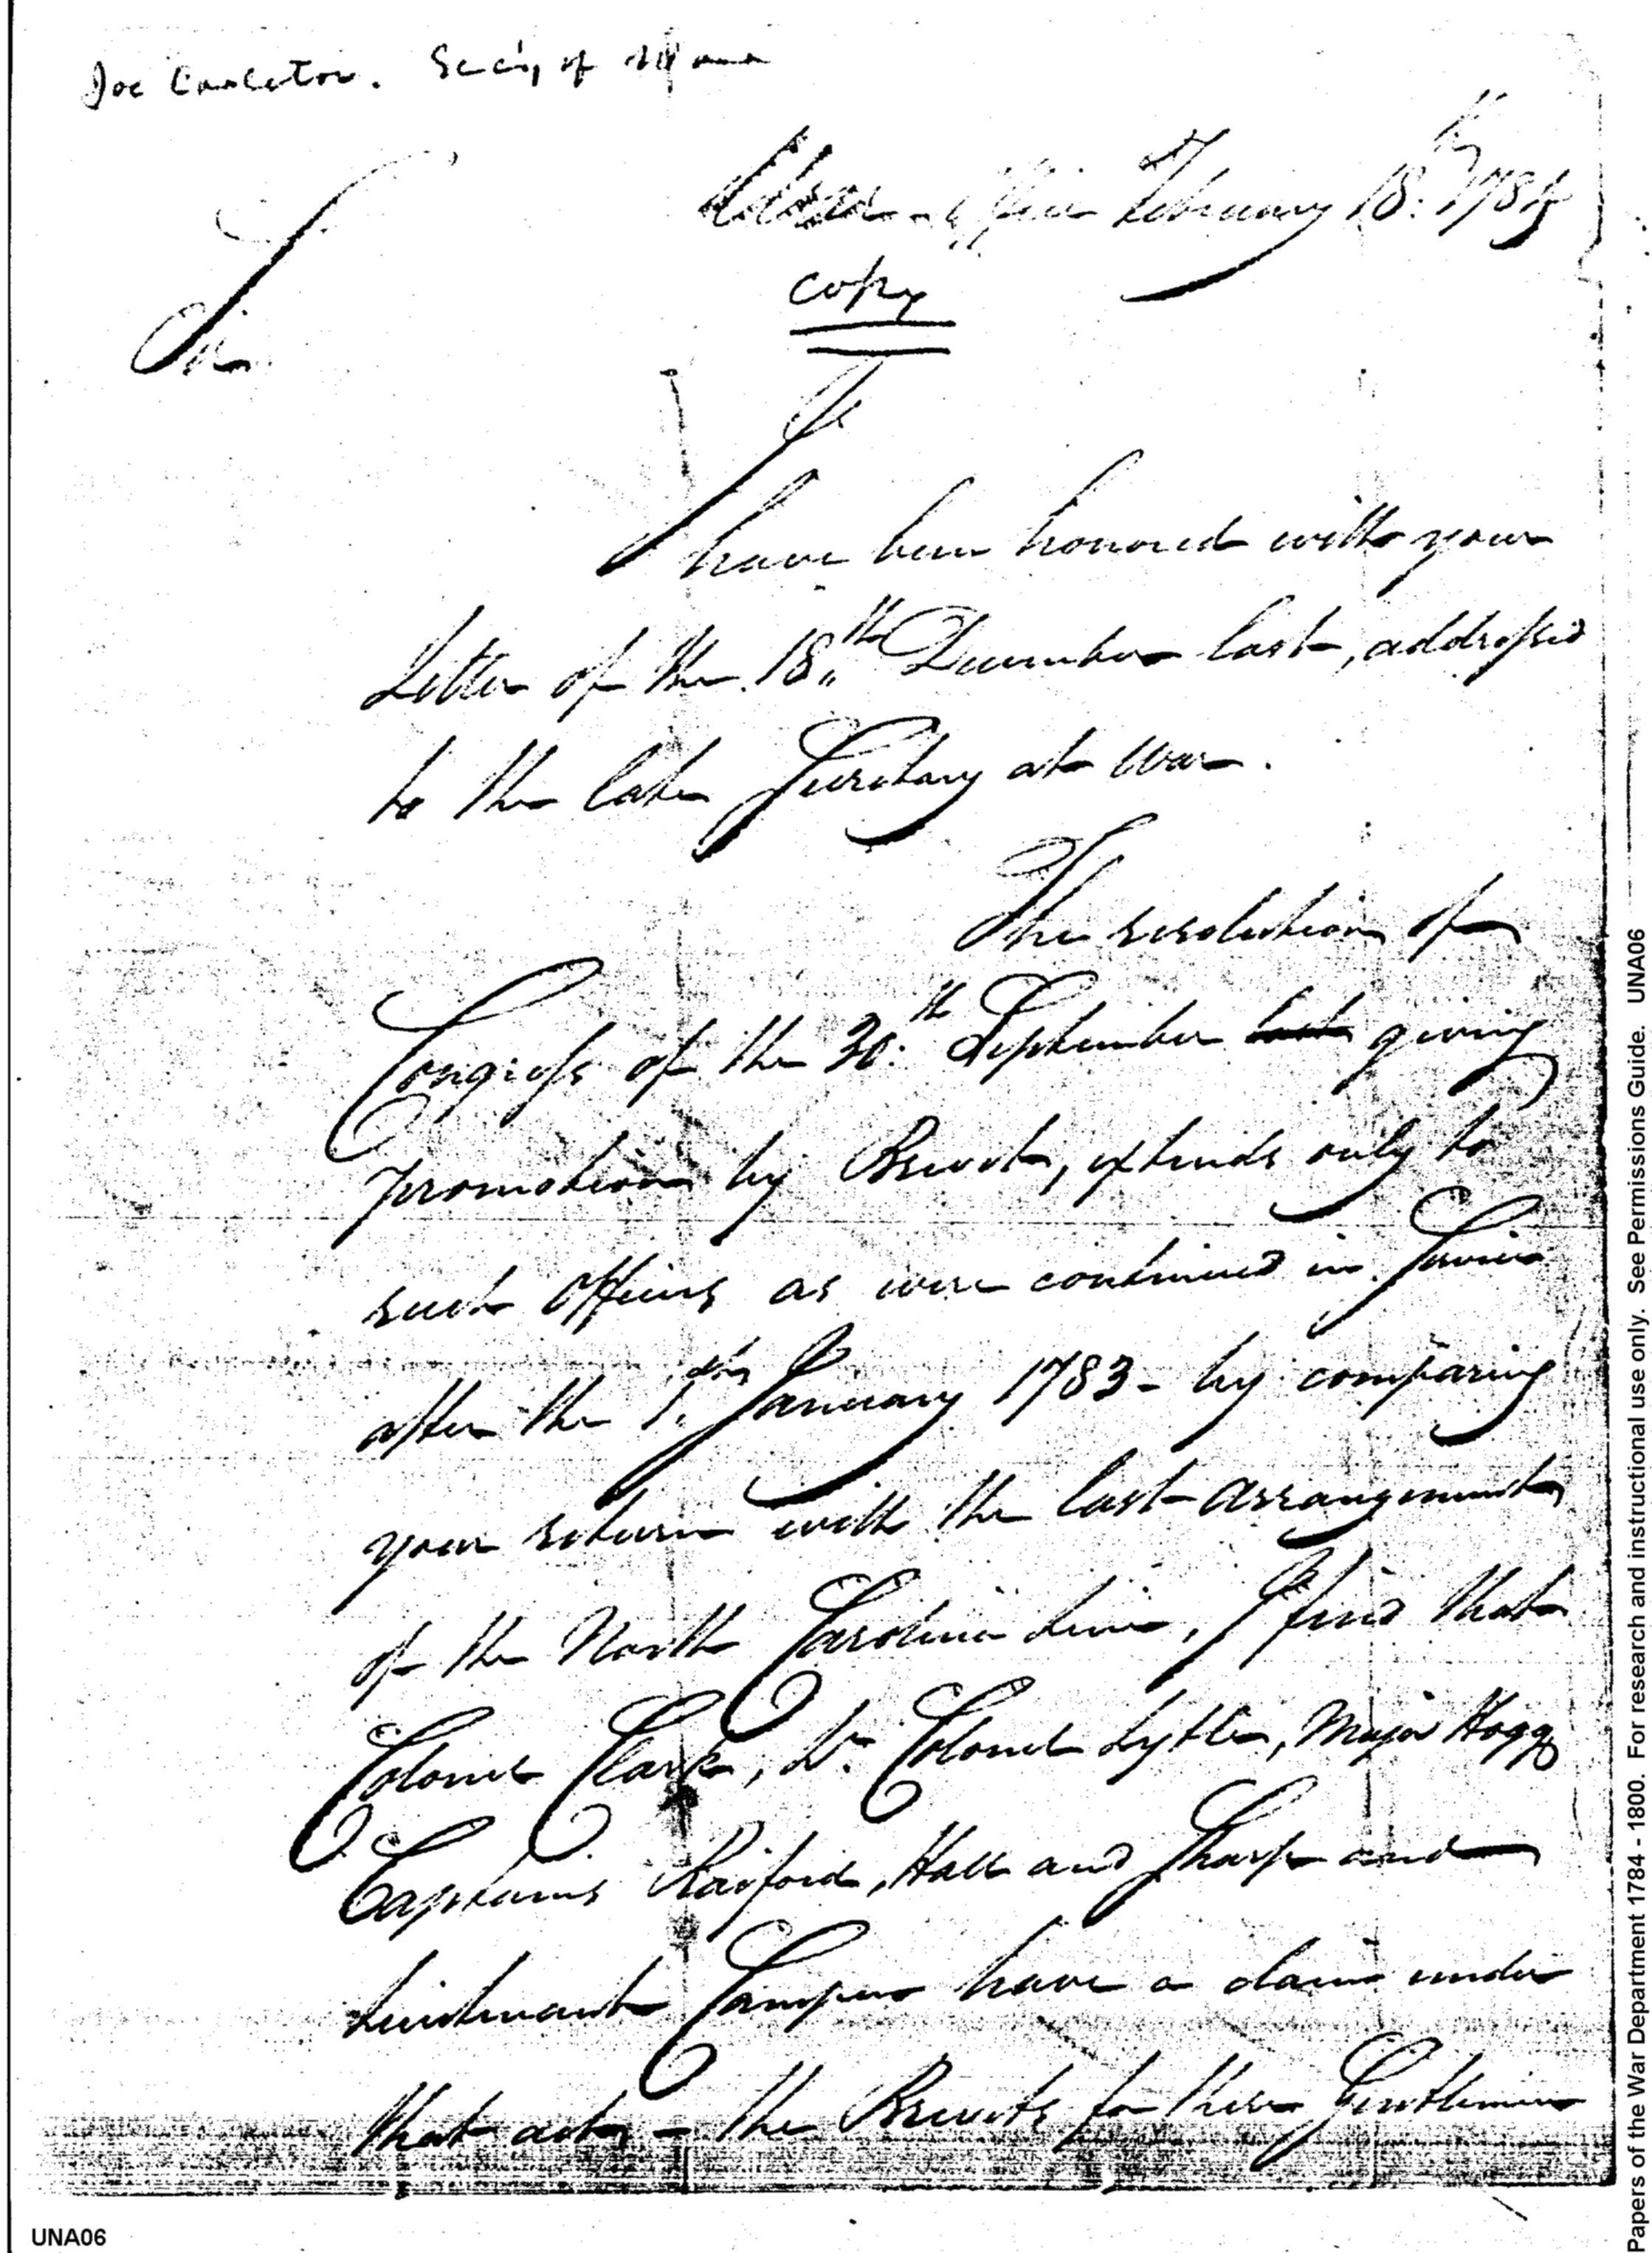 Joe Carleton. Sec'y of War
War-Office February 18th 1784
copy
Sir
I
have been honored with your
Letter of the 18th December last, addressed
to the late Secretary at War.
The resolution of
Congress of the 30th September last giving
promotion by Brevet, extends only to
such Officers as were continued in Service
after the 1. day January 1783 - by comparing
your return with the last arrangement
of the North Carolina Line, I find that
Colonel Clark, Lt. Colonel Lytle, Major Hogg
Captains Raiford, Hall and Sharp and
Lieutenant Campen have a claim under
that act - the Brevets for these Gentlemen
UNA06
Papers of the War Department 1784 - 1800. For research and instructional use only. See Permissions Guide. UNA06